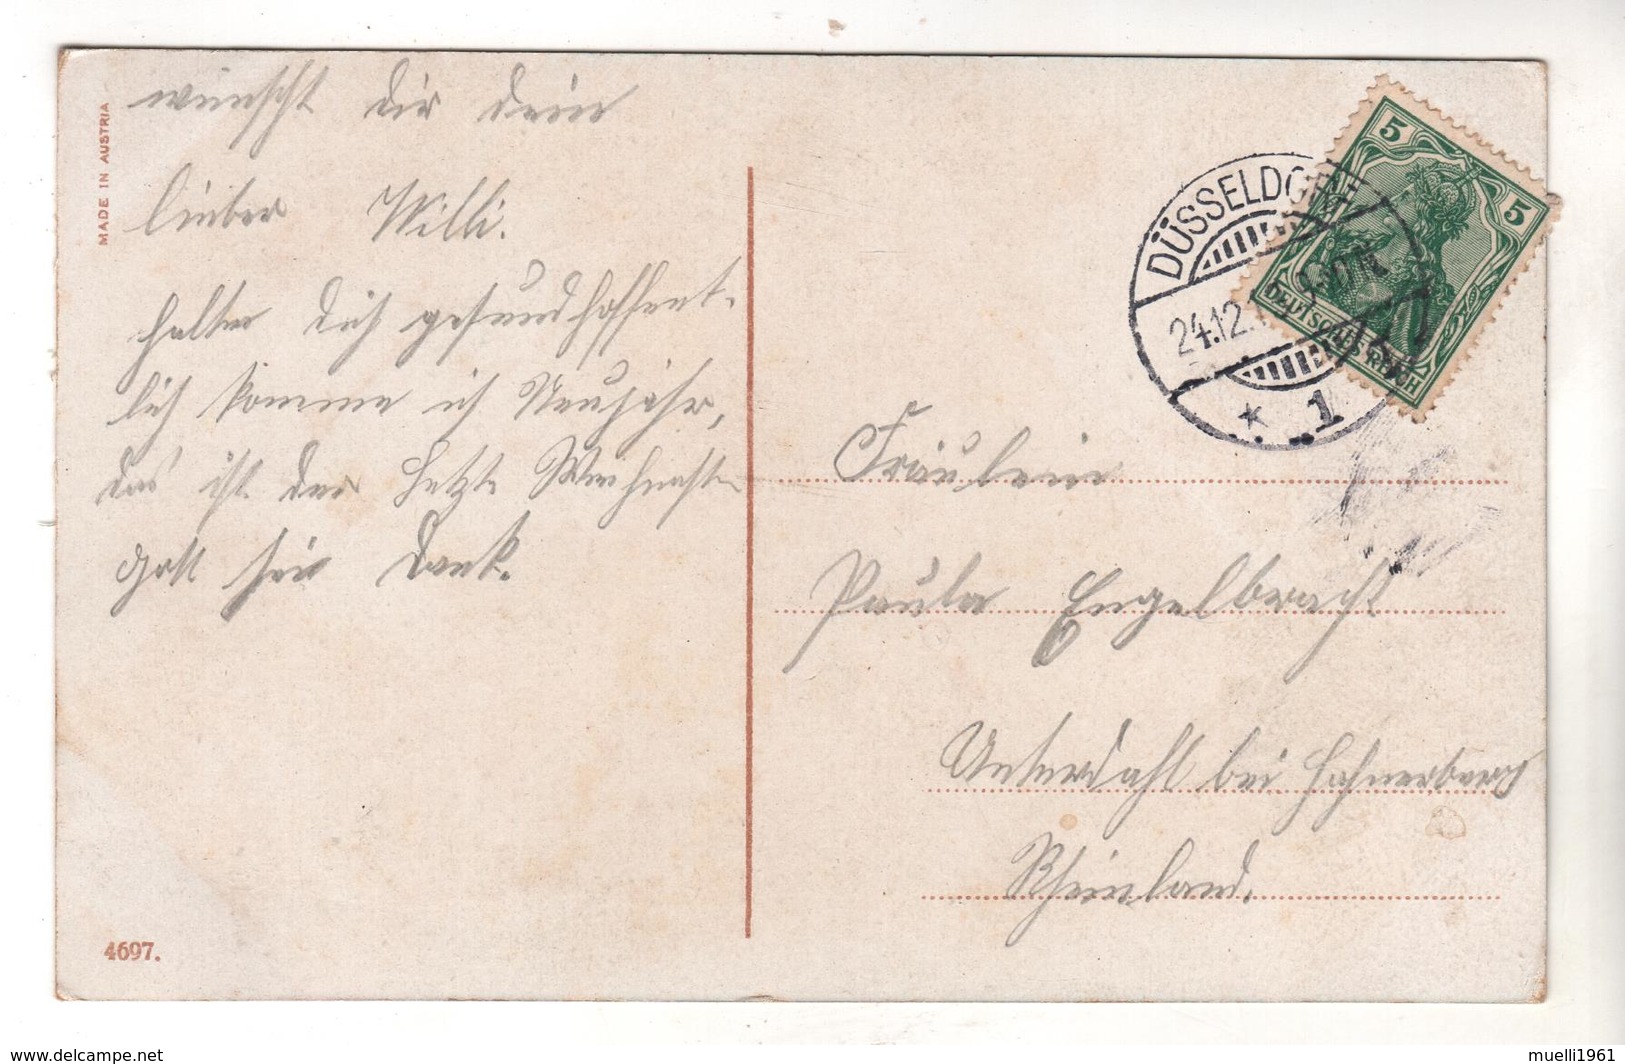 MADE IN AUSTRIA
wünscht dir dein
lieber Willi.
halte dich gesund hoffent-
lich komme ich Neujahr,
das ist der letzte Weihnacht
gott sei dank.
4697.
DÜSSELDORF
24.12.
* 1
5 5
DEUTSCHES REICH
Fräulein
Paula Engelbracht
Unterdahl bei Hahnerberg
Rheinland.
www.delcampe.net
muelli1961